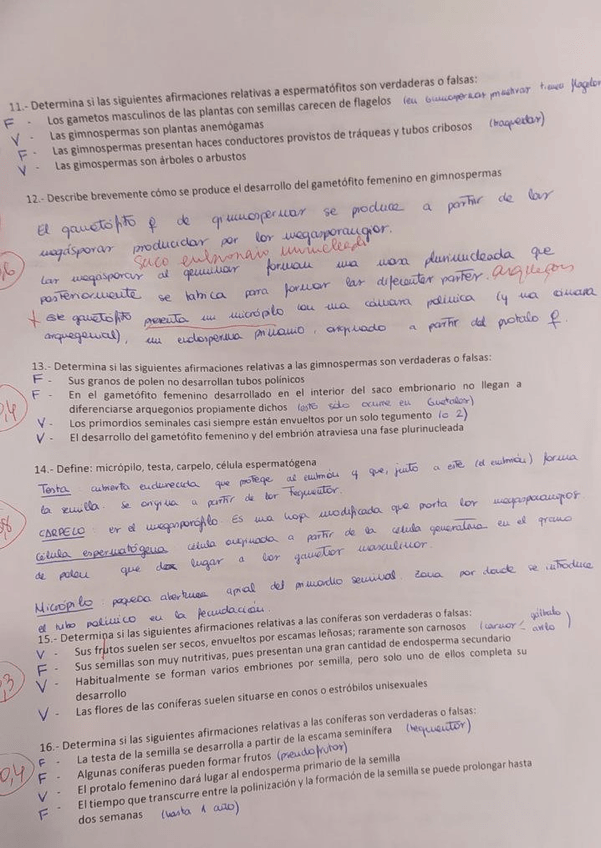 11.- Determina si las siguientes afirmaciones relativas a espermatófitos son verdaderas o falsas:
F - Los gametos masculinos de las plantas con semillas carecen de flagelos (en Gimnospermas flagelos
V - Las gimnospermas son plantas anemógamas
F - Las gimnospermas presentan haces conductores provistos de tráqueas y tubos cribosos (traqueidas)
V - Las gimospermas son árboles o arbustos
12.- Describe brevemente cómo se produce el desarrollo del gametófito femenino en gimnospermas
El gametófito ♀ de gimnospermas se produce a partir de las
megásporas producidas por los megasporangios.
saco embrionario uninucleado
Las megasporas al germinar forman una masa plurinucleada que
posteriormente se tabica para formar las diferentes partes. arquegonios
* Este gametófito presenta un micrópilo con una cámara polínica (y una cámara
arquegonial), un endosperma primario, originado a partir del protalo ♀.
13.- Determina si las siguientes afirmaciones relativas a las gimnospermas son verdaderas o falsas:
F - Sus granos de polen no desarrollan tubos polínicos
F - En el gametófito femenino desarrollado en el interior del saco embrionario no llegan a
diferenciarse arquegonios propiamente dichos (esto sólo ocurre en Gnetales)
V - Los primordios seminales casi siempre están envueltos por un solo tegumento (o 2)
V - El desarrollo del gametófito femenino y del embrión atraviesa una fase plurinucleada
0,4
14.- Define: micrópilo, testa, carpelo, célula espermatógena
Testa: cubierta endurecida que protege al embrión y que, junto a este (el embrión) forma
la semilla. Se origina a partir de los tegumentos.
CARPELO: es el megasporófilo. Es una hoja modificada que porta los megasporangios
Célula espermatógena: célula originada a partir de la célula generativa en el grano
de polen que da lugar a los gametos masculinos.
Micrópilo: pequeña abertura apical del primordio seminal. Zona por donde se introduce
el tubo polínico en la fecundación.
15.- Determina si las siguientes afirmaciones relativas a las coníferas son verdaderas o falsas:
V - Sus frutos suelen ser secos, envueltos por escamas leñosas; raramente son carnosos
F - Sus semillas son muy nutritivas, pues presentan una gran cantidad de endosperma secundario
V - Habitualmente se forman varios embriones por semilla, pero solo uno de ellos completa su
desarrollo
V - Las flores de las coníferas suelen situarse en conos o estróbilos unisexuales
16.- Determina si las siguientes afirmaciones relativas a las coníferas son verdaderas o falsas:
F - La testa de la semilla se desarrolla a partir de la escama seminífera (tegumentos)
F - Algunas coníferas pueden formar frutos (pseudofrutos)
V - El protalo femenino dará lugar al endosperma primario de la semilla
F - El tiempo que transcurre entre la polinización y la formación de la semilla se puede prolongar hasta
dos semanas (hasta 1 año)
0,4